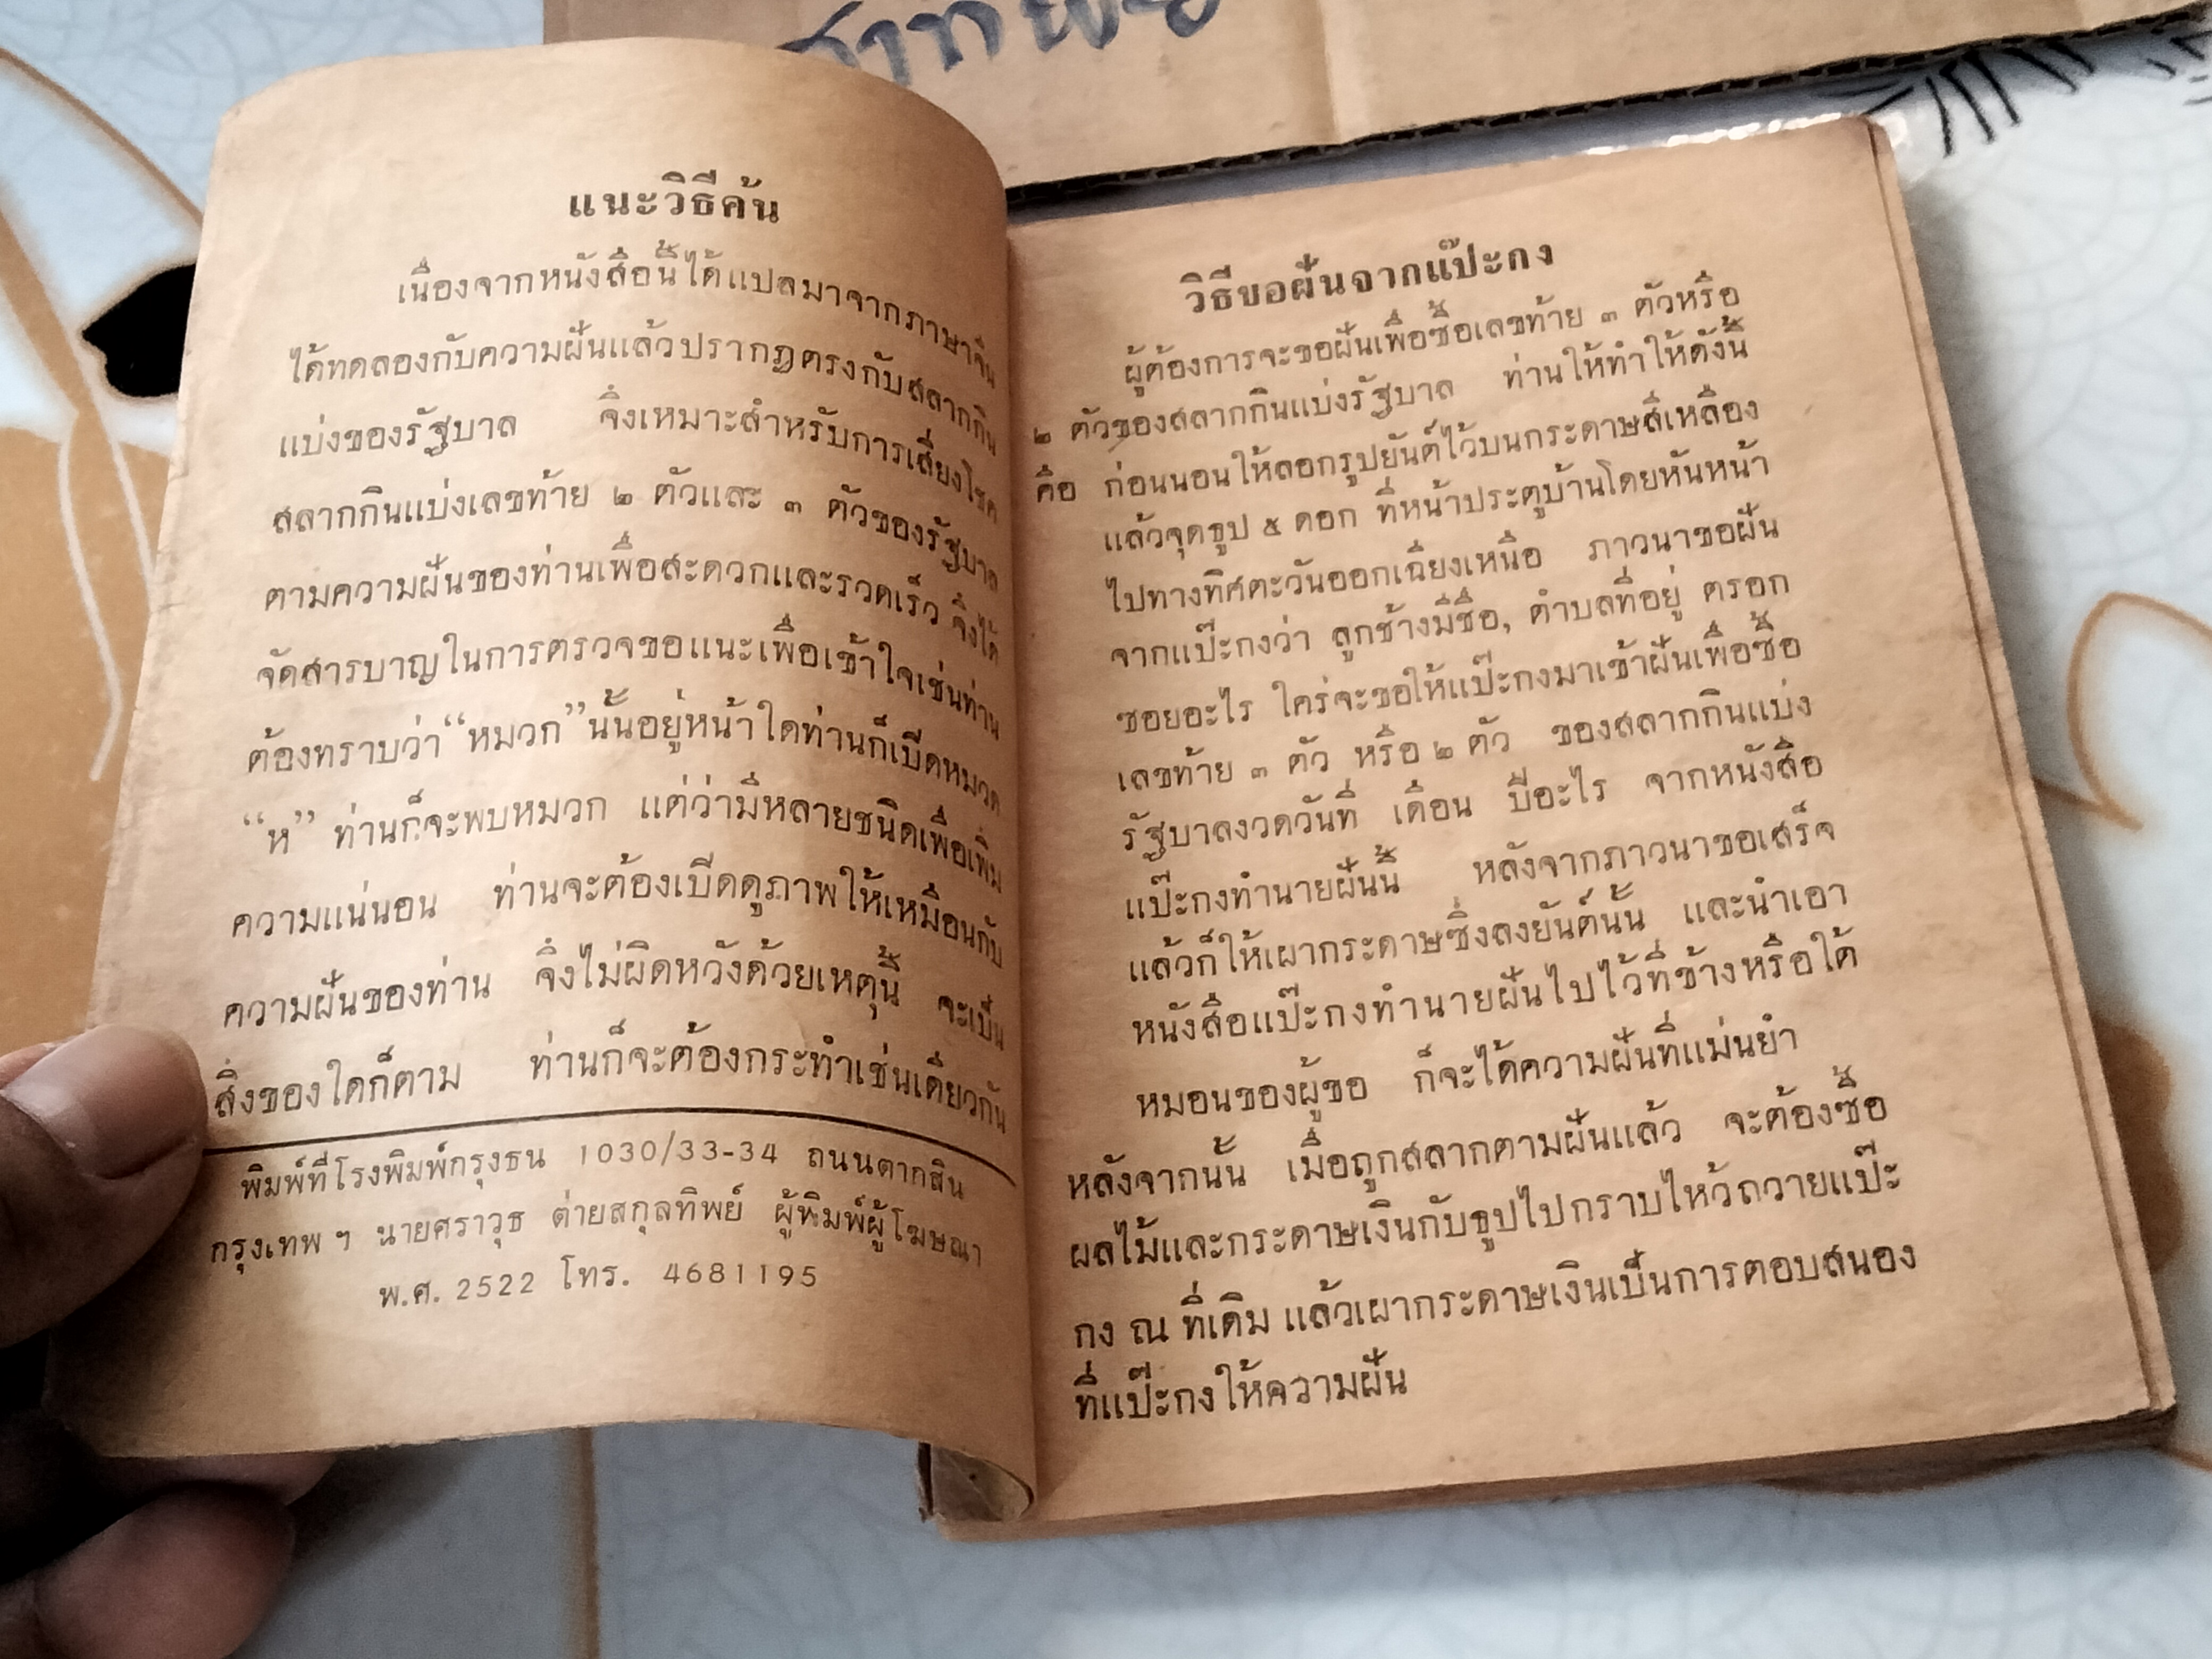 แนะวิธีค้น
เนื่องจากหนังสือนี้ได้แปลมาจากภาษาจีน
ได้ทดลองกับความฝันแล้วปรากฎตรงกับสลากกิน
แบ่งของรัฐบาล จึงเหมาะสำหรับการเสี่ยงโชค
สลากกินแบ่งเลขท้าย ๒ ตัวและ ๓ ตัวของรัฐบาล
ตามความฝันของท่านเพื่อสะดวกและรวดเร็ว จึงได้
จัดสารบาญในการตรวจขอแนะเพื่อเข้าใจเช่นท่าน
ต้องทราบว่า “หมวก” นั้นอยู่หน้าใดท่านก็เปิดหมวด
“ห” ท่านก็จะพบหมวก แต่ว่ามีหลายชนิดเพื่อเพิ่ม
ความแน่นอน ท่านจะต้องเปิดดูภาพให้เหมือนกับ
ความฝันของท่าน จึงไม่ผิดหวังด้วยเหตุนี้ จะเป็น
สิ่งของใดก็ตาม ท่านก็จะต้องกระทำเช่นเดียวกัน
พิมพ์ที่โรงพิมพ์กรุงธน 1030/33-34 ถนนตากสิน
กรุงเทพ ฯ นายศราวุธ ต่ายสกุลทิพย์ ผู้พิมพ์ผู้โฆษณา
พ.ศ. 2522 โทร. 4681195
วิธีขอฝันจากแป๊ะกง
ผู้ต้องการจะขอฝันเพื่อซื้อเลขท้าย ๓ ตัวหรือ
๒ ตัวของสลากกินแบ่งรัฐบาล ท่านให้ทำให้ดังนี้
คือ ก่อนนอนให้ลอกรูปยันต์ไว้บนกระดาษสีเหลือง
แล้วจุดธูป ๕ ดอก ที่หน้าประตูบ้านโดยหันหน้า
ไปทางทิศตะวันออกเฉียงเหนือ ภาวนาขอฝัน
จากแป๊ะกงว่า ลูกช้างมีชื่อ, ตำบลที่อยู่ ตรอก
ซอยอะไร ใคร่จะขอให้แป๊ะกงมาเข้าฝันเพื่อซื้อ
เลขท้าย ๓ ตัว หรือ ๒ ตัว ของสลากกินแบ่ง
รัฐบาลงวดวันที่ เดือน ปีอะไร จากหนังสือ
แป๊ะกงทำนายฝันนี้ หลังจากภาวนาขอเสร็จ
แล้วก็ให้เผากระดาษซึ่งลงยันต์นั้น และนำเอา
หนังสือแป๊ะกงทำนายฝันไปไว้ที่ข้างหรือใต้
หมอนของผู้ขอ ก็จะได้ความฝันที่แม่นยำ
หลังจากนั้น เมื่อถูกสลากตามฝันแล้ว จะต้องซื้อ
ผลไม้และกระดาษเงินกับธูปไปกราบไหว้ถวายแป๊ะ
กง ณ ที่เดิม แล้วเผากระดาษเงินเป็นการตอบสนอง
ที่แป๊ะกงให้ความฝัน